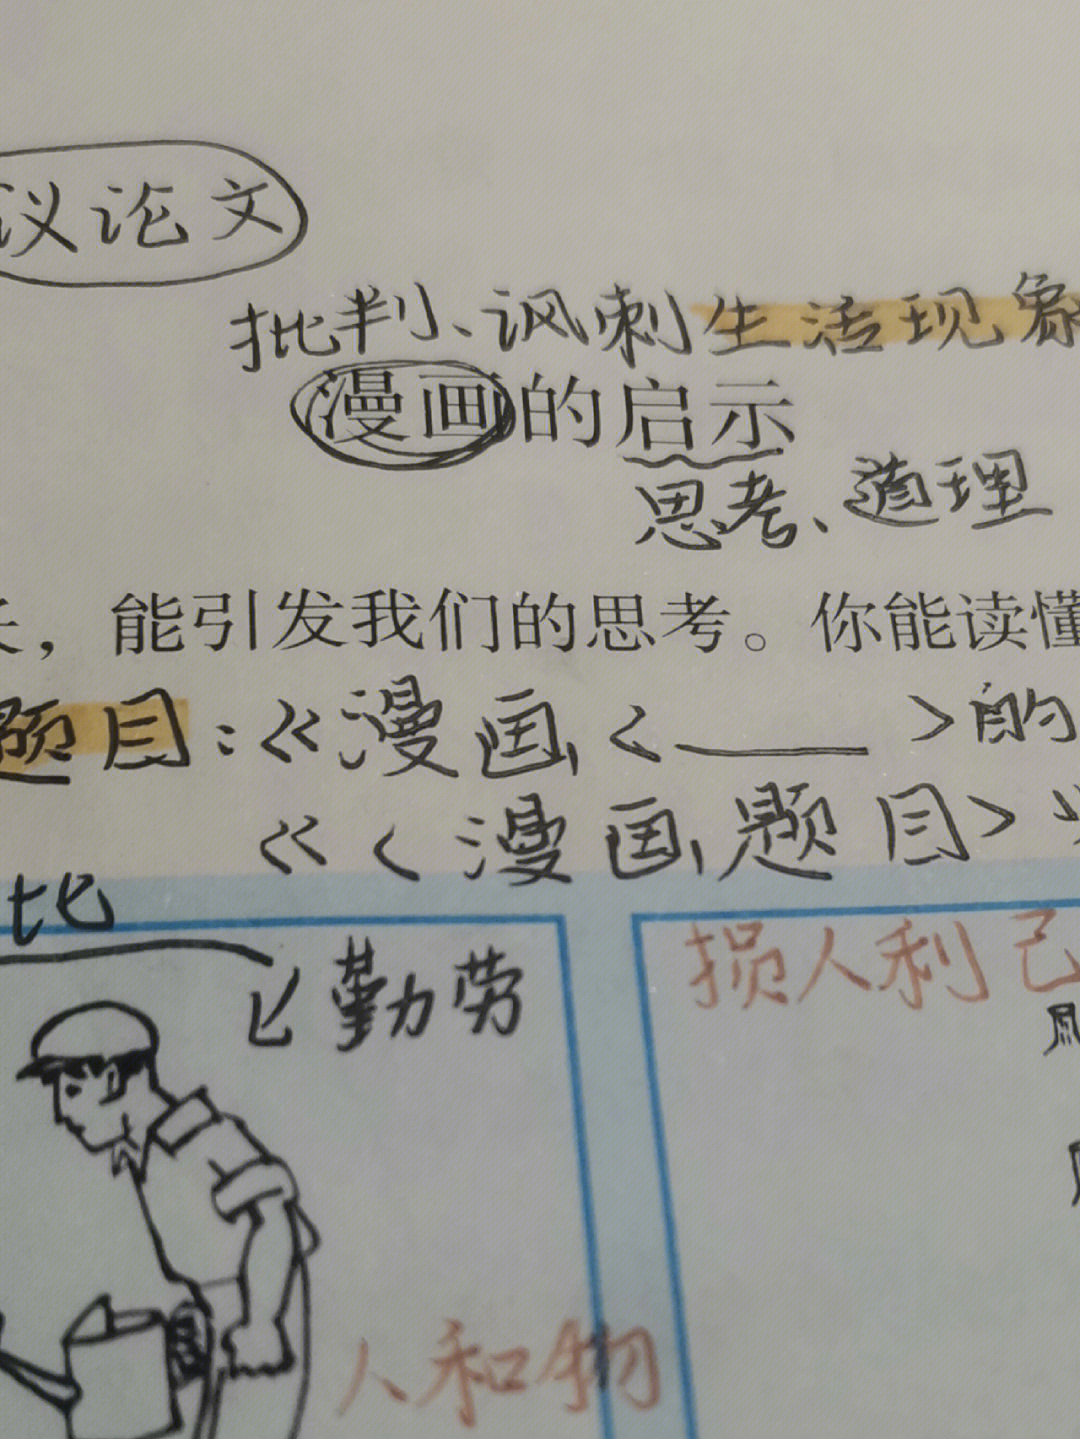 议论文
批判、讽刺生活现象
漫画的启示
思考、道理
，能引发我们的思考。你能读懂
题目：《漫画<____>的
《<漫画题目>
比
勤劳
损人利己
人和物